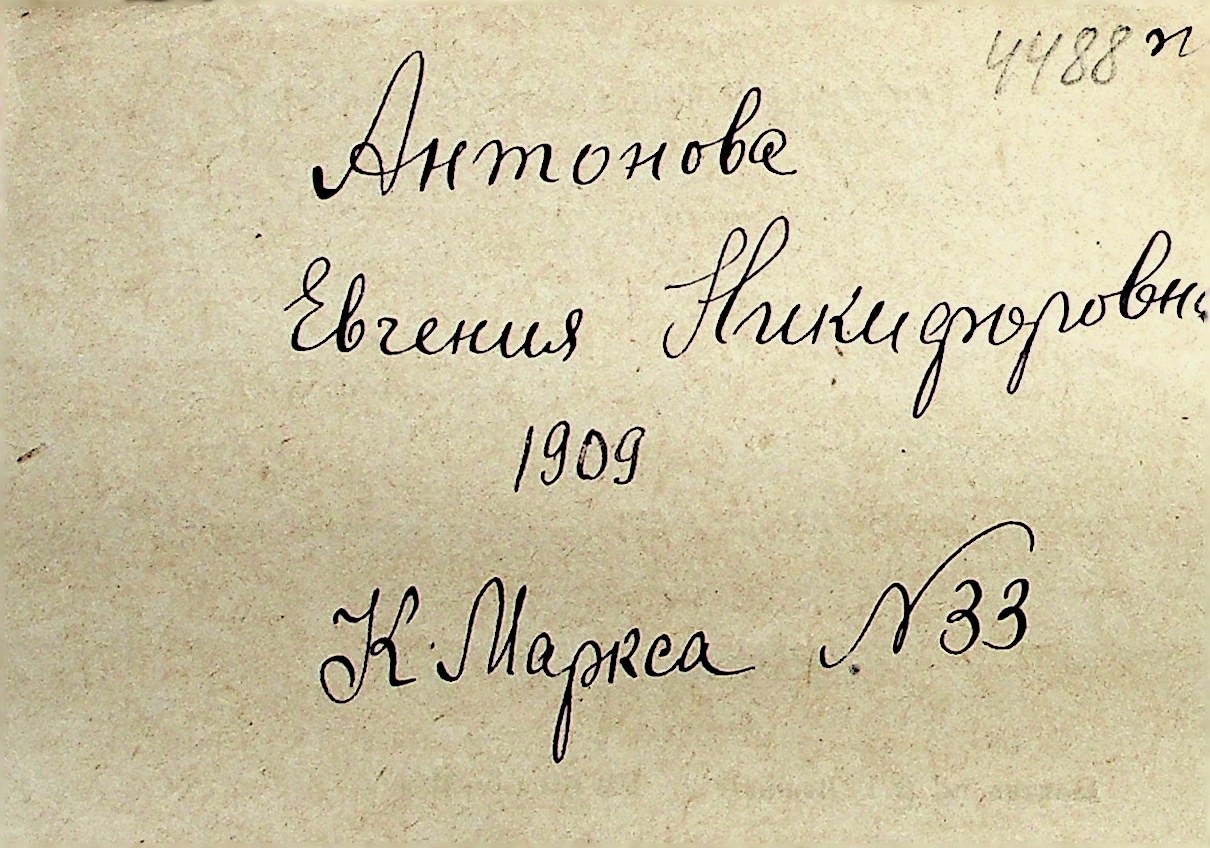 4488 п
Антонова
Евгения Никифоровна
1909
К. Маркса № 33